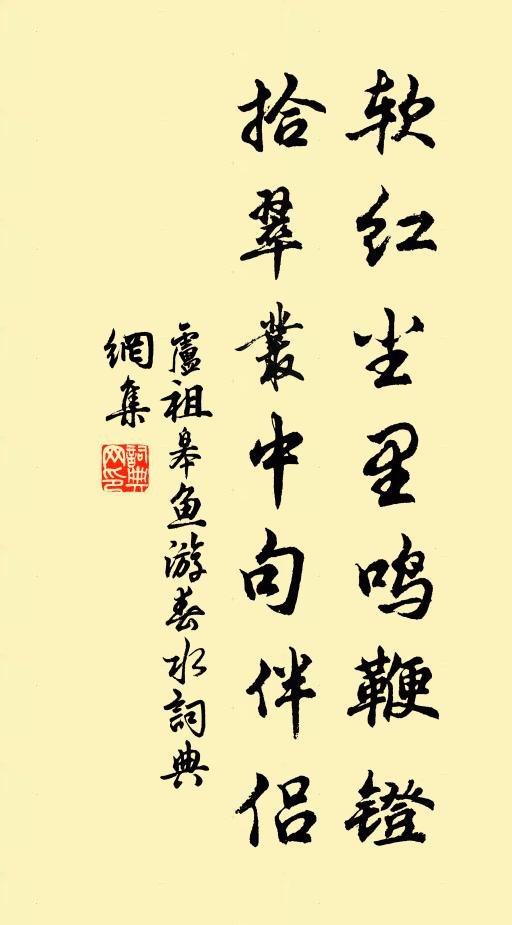 软红尘里鸣鞭镫
拾翠丛中句伴侣
盧祖皋鱼游春水詞典
網集
詞典
网印